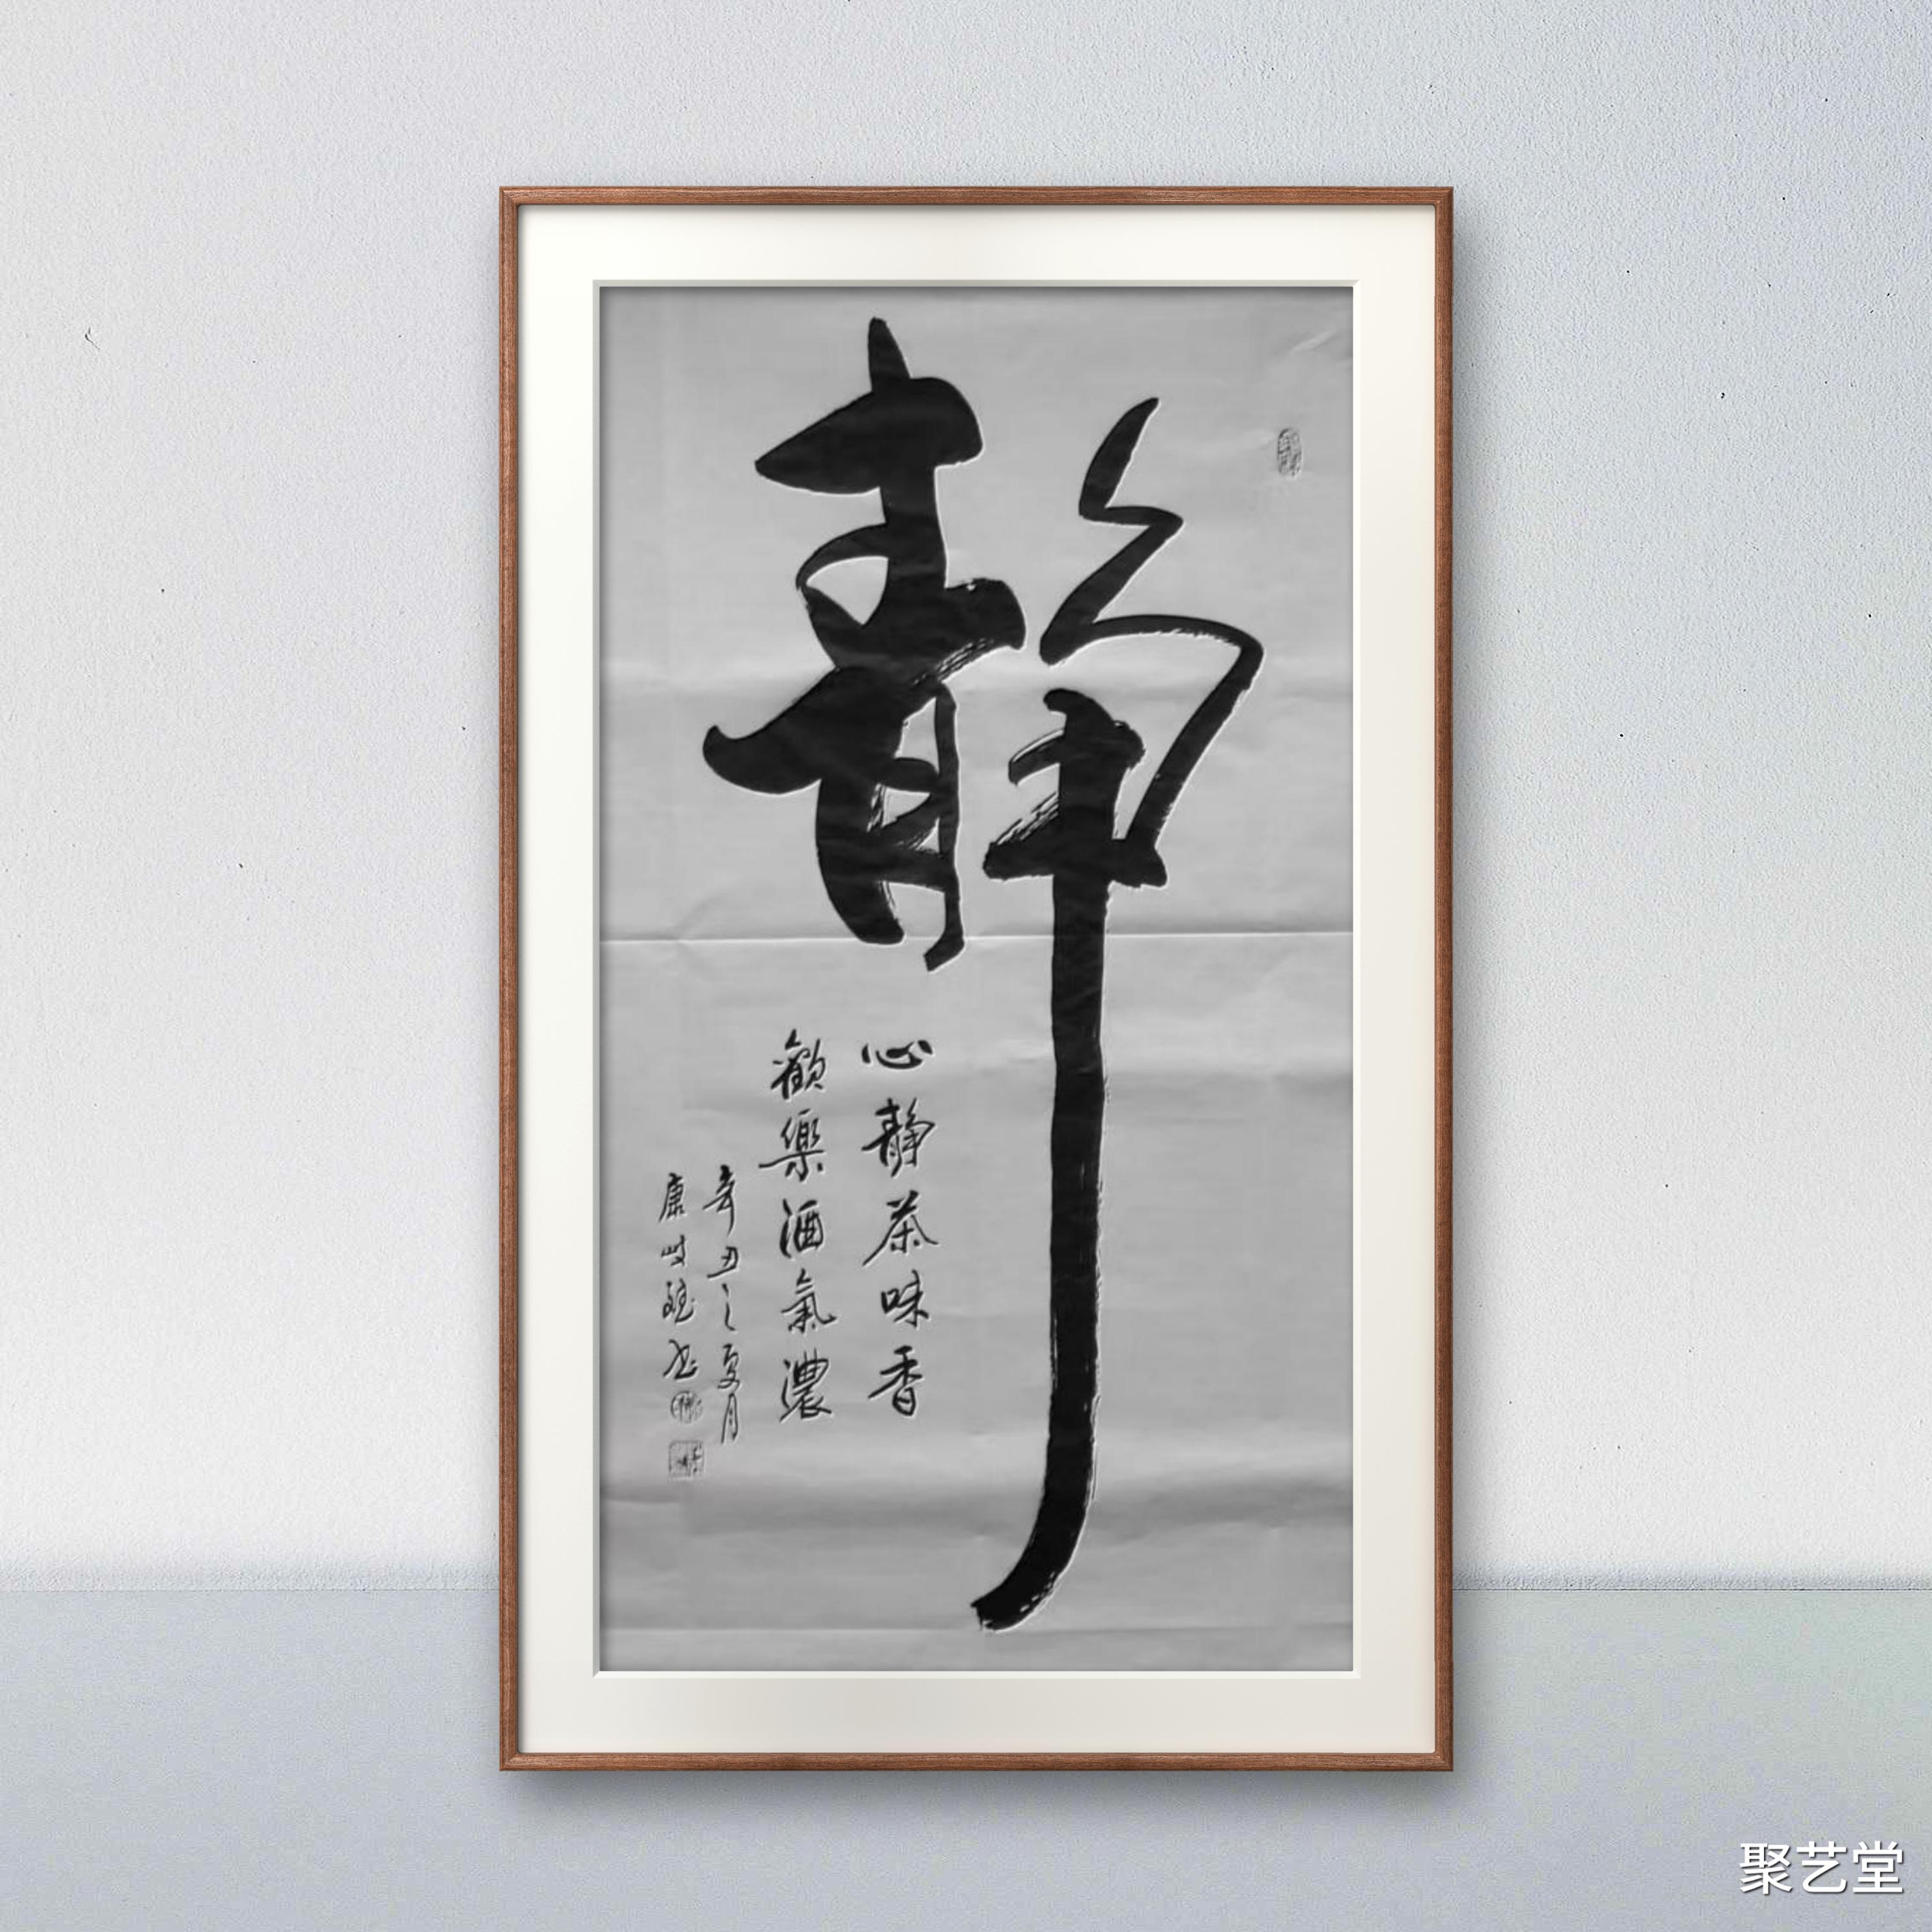 靜
心靜茶味香
歡樂酒氣濃
辛丑之夏月
康岐
聚艺堂